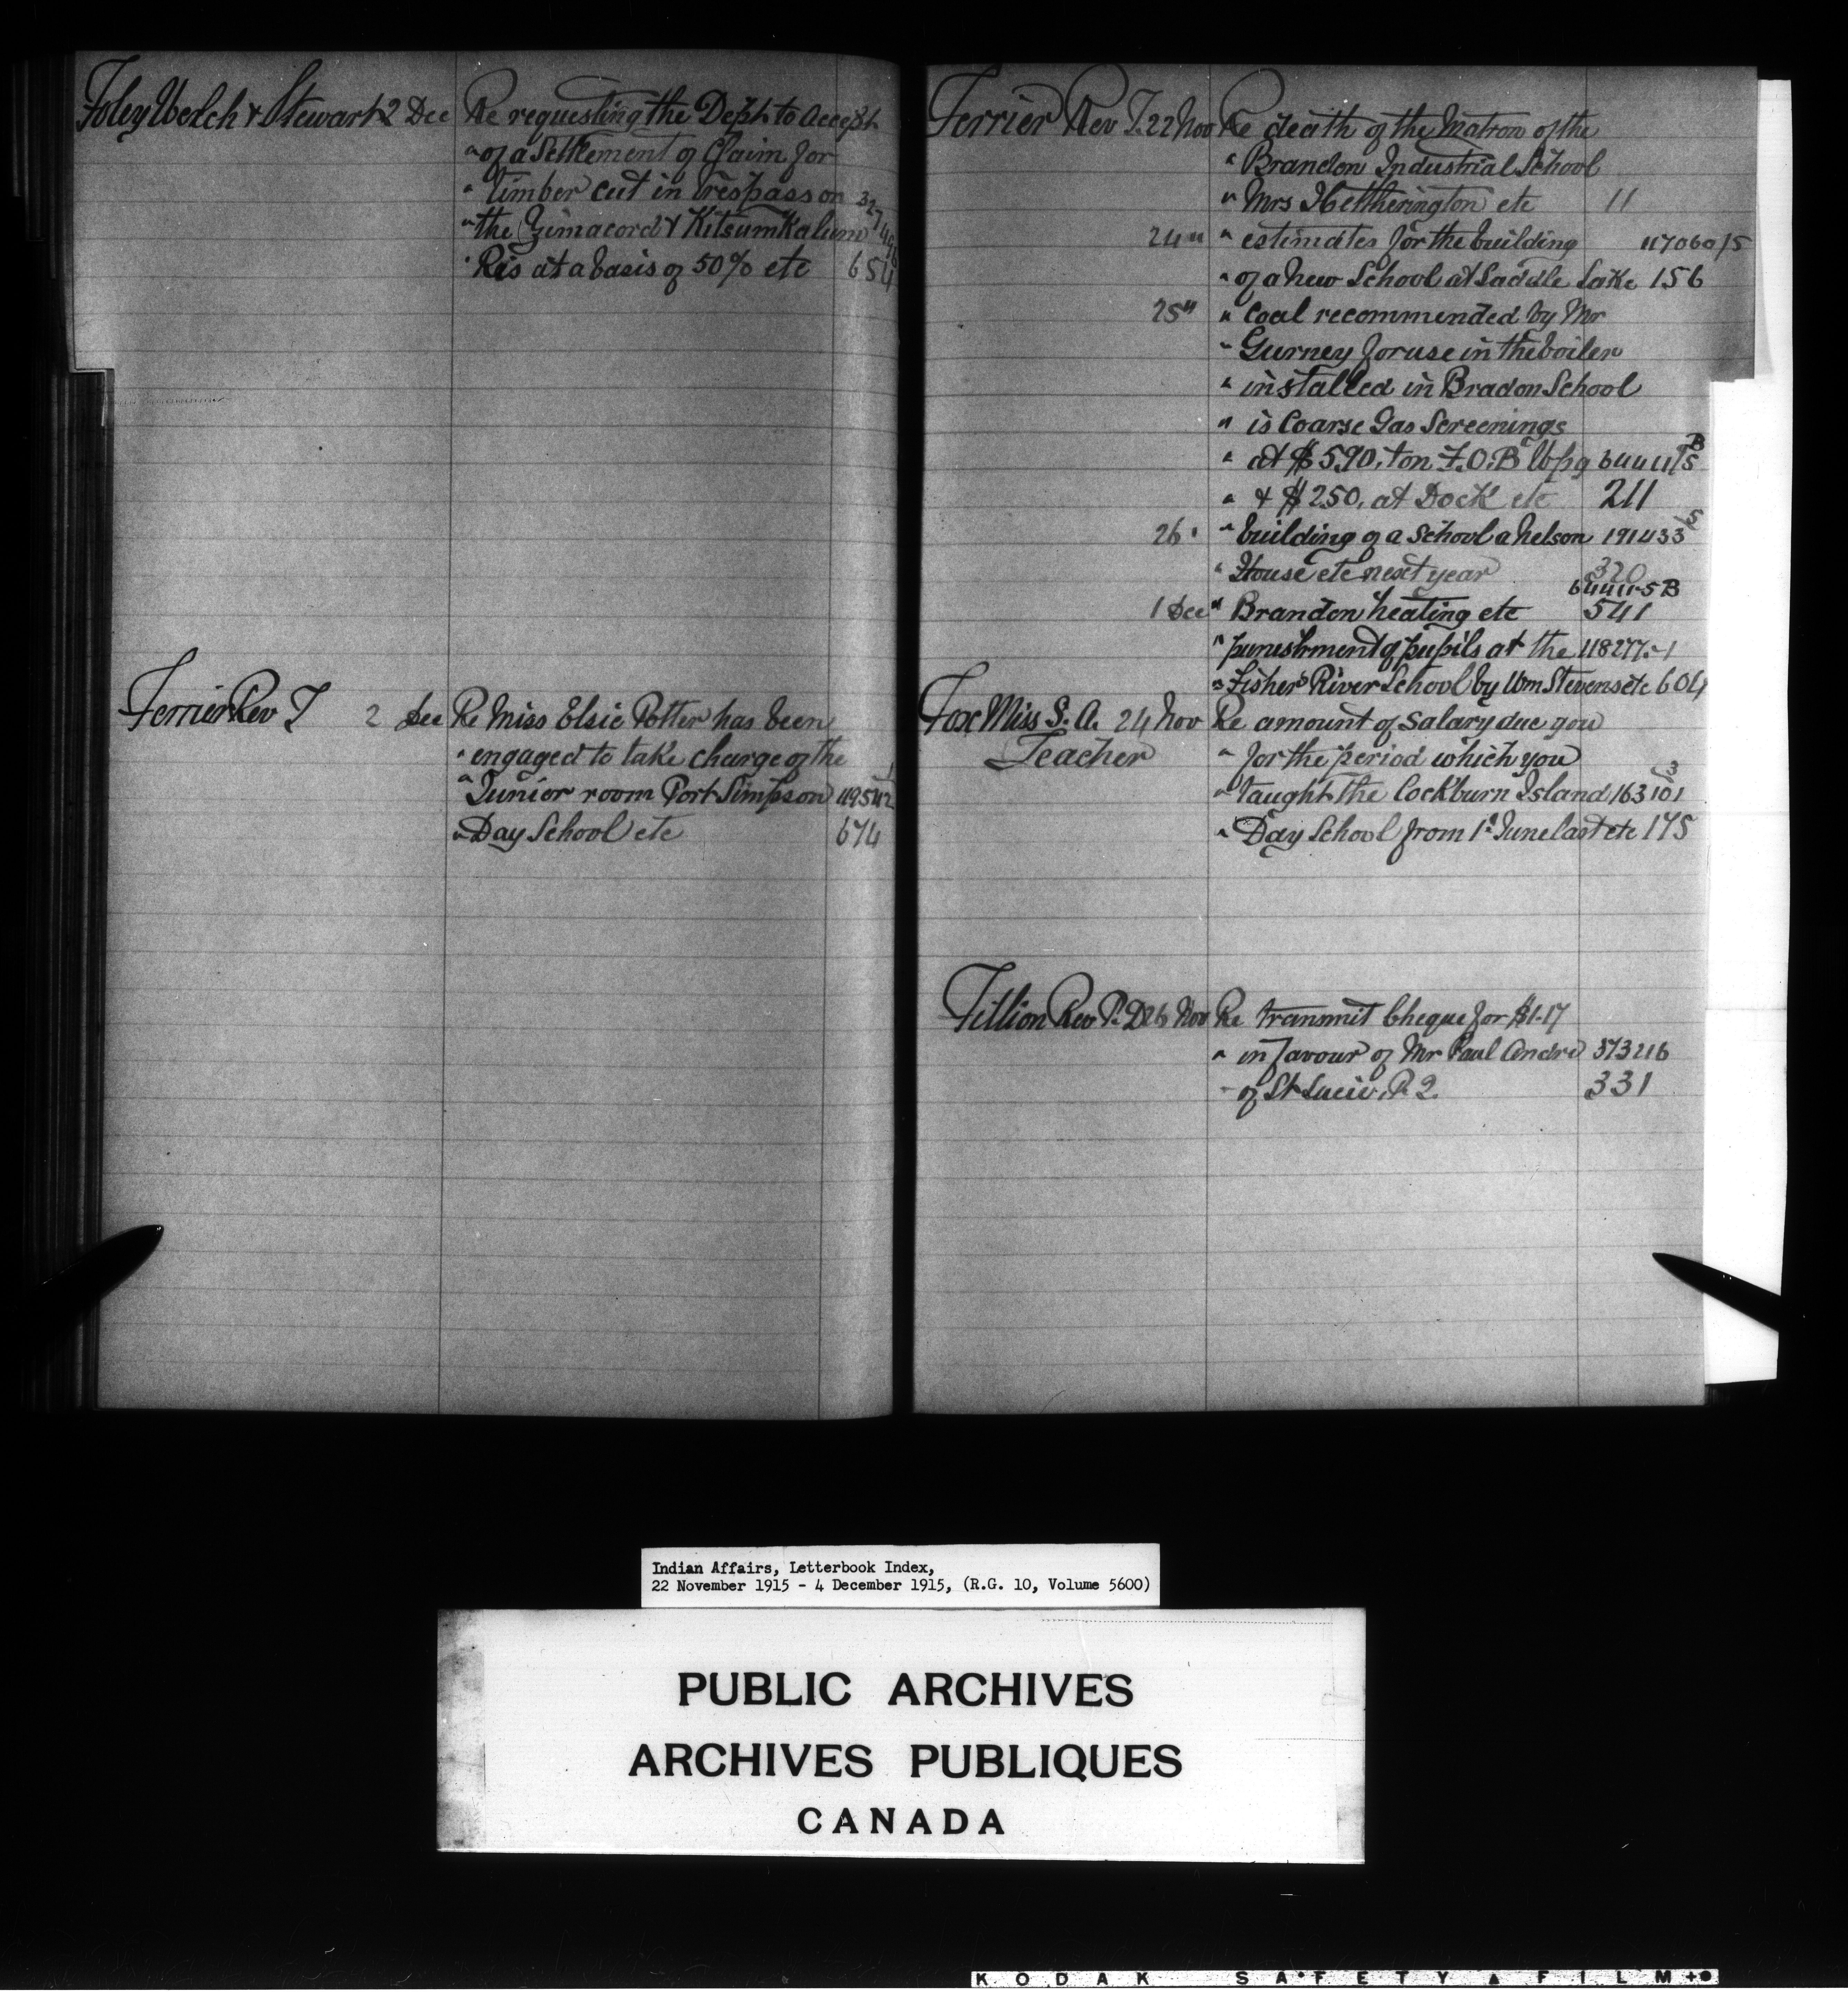 Foley Welch & Stewart 2 Dec Re requesting the Dept to accept
" of a Settlement of Claim for
" timber cut in trespass on 327496
" the Zimacord & KitsumKalum
" Res at a basis of 50% etc 654
Ferrier Rev T 2 Dec Re Miss Elsie Potter has been
" engaged to take charge of the
" Junior room Port Simpson
" Day School etc 674
Ferrier Rev T. 22 Nov Re death of the Matron of the
" Brandon Industrial School
" Mrs Hettherington etc 11
24 " " estimates for the building 117060/5
" of a new School at Saddle Lake 156
25 " " Coal recommended by Mr
" Gurney for use in the boiler
" installed in Bradon School
" is Coarse Gas Screenings
" at $5.90. ton F.O.B Wpg 64411/5 B
" & $2.50. at Dock etc 211
26 " " building of a School a Nelson 191433/5
" House etc next year 320
64411-5 B
1 Dec " Brandon heating etc 541
" punishment of pupils at the 118277.-1
" Fisher River School by Wm Stevens etc 604
Fox Miss S. A. 24 Nov Re amount of Salary due you
Teacher " for the period which you
" taught the Cockburn Island 163101/3
" Day School from 1st June last etc 175
Fillion Rev P. D 26 Nov Re transmit Cheque for $1.17
" in favour of Mr Paul Andre 373216
" of St Lucie, P. 2. 331
Indian Affairs, Letterbook Index,
22 November 1915 - 4 December 1915, (R.G. 10, Volume 5600)
PUBLIC ARCHIVES
ARCHIVES PUBLIQUES
CANADA
KODAK SAFETY ▲ FILM +●